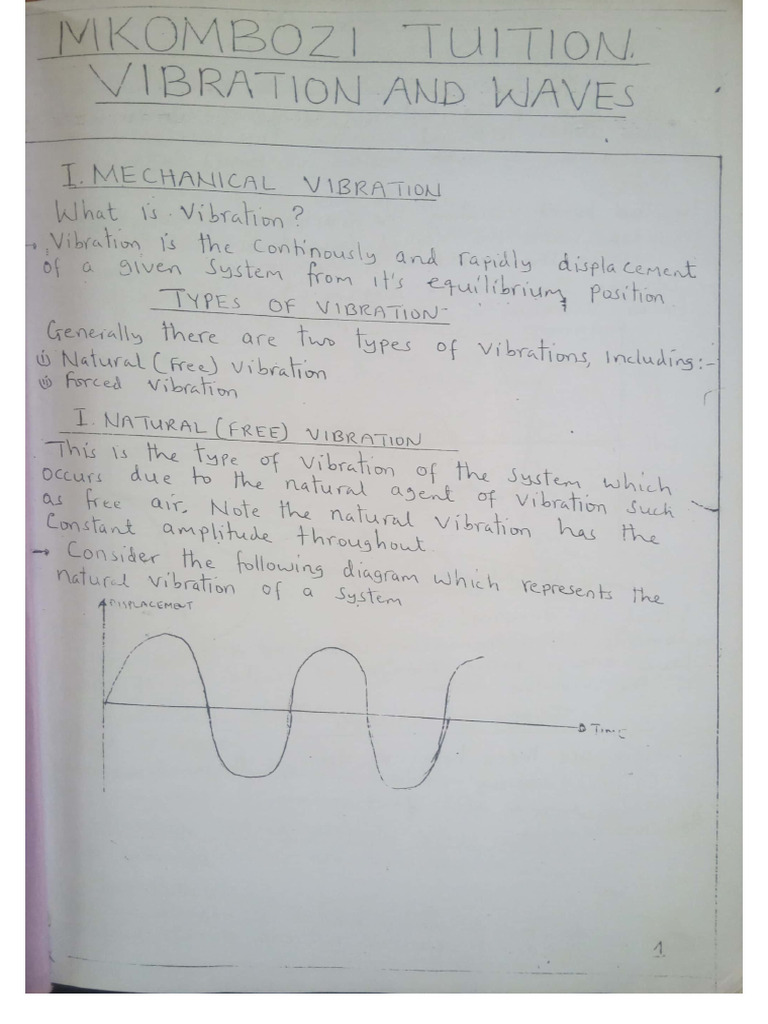 MKOMBOZI TUITION.
VIBRATION AND WAVES
I. MECHANICAL VIBRATION
What is Vibration?
→ Vibration is the continously and rapidly displacement
of a given system from it's equilibrium position
TYPES OF VIBRATION
Generally there are two types of vibrations, including:-
(i) Natural (Free) Vibration
(ii) Forced Vibration
I. NATURAL (FREE) VIBRATION
This is the type of vibration of the system which
occurs due to the natural agent of vibration such
as free air. Note the natural vibration has the
Constant amplitude throughout.
→ Consider the following diagram which represents the
natural vibration of a system
DISPLACEMENT
Time
1